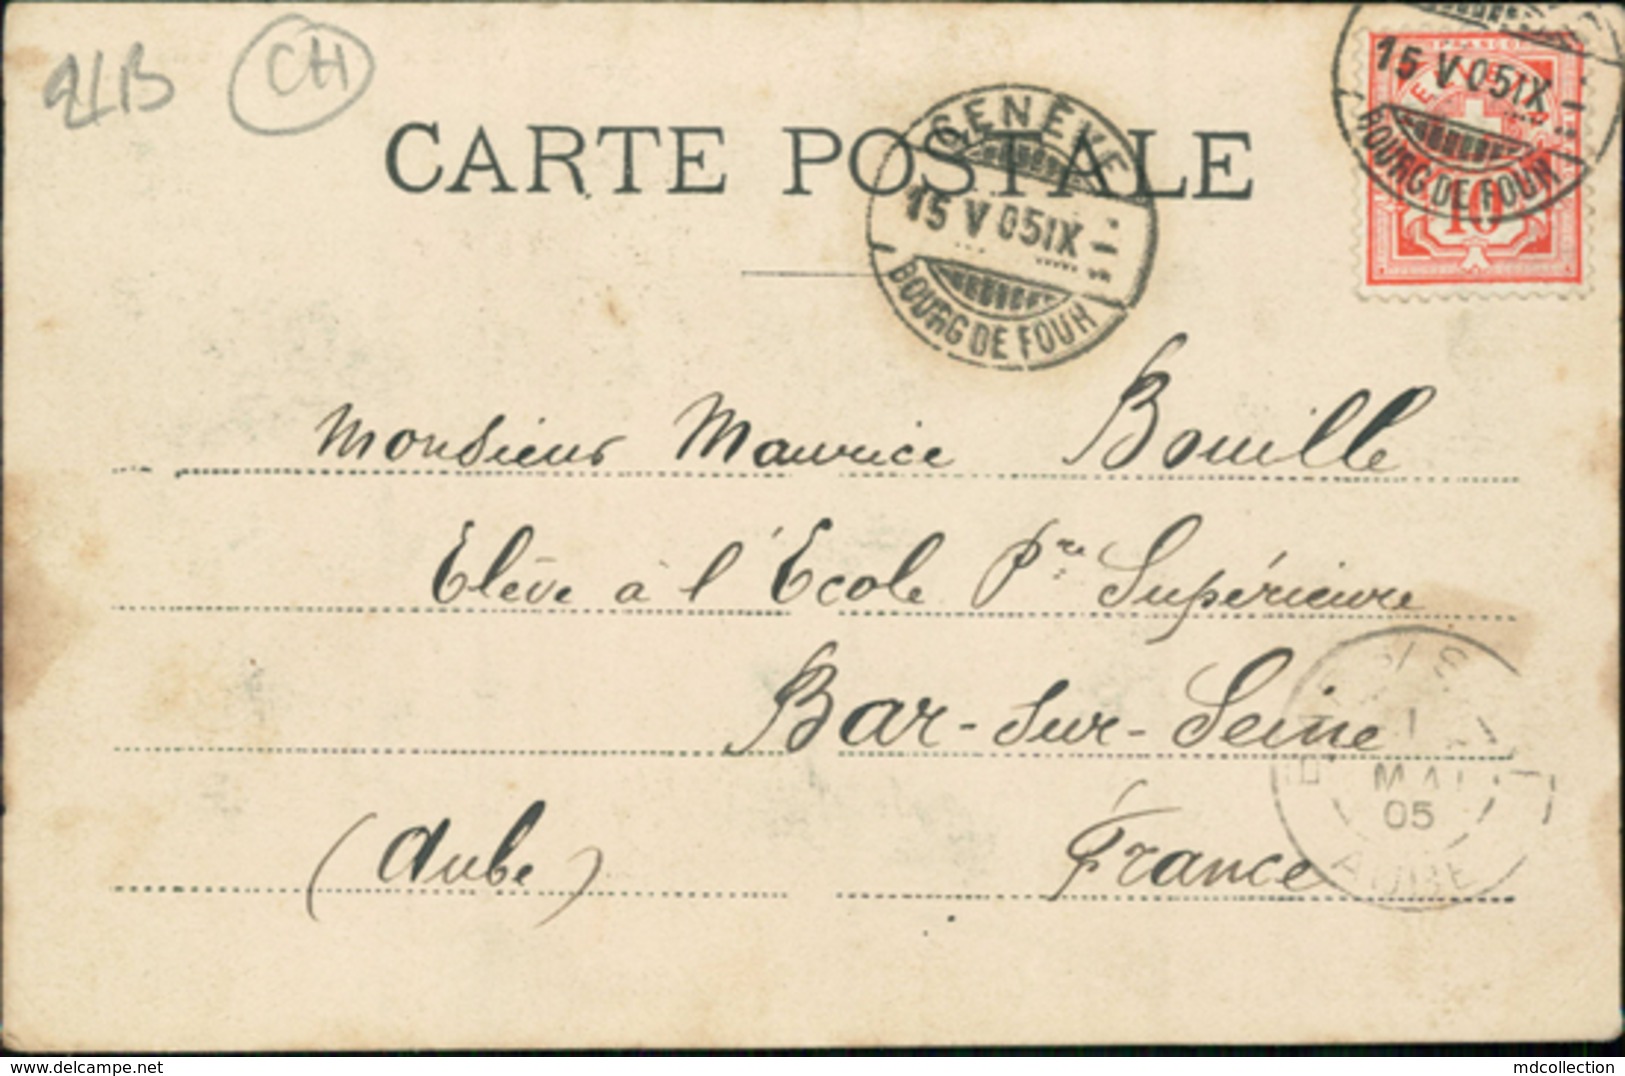 CH
CARTE POSTALE
GENÈVE
15 V 05 IX
BOURG DE FOUR
FRANCO
15 V 05 IX
BOURG DE FOUR
10
Monsieur Maurice Bouille
Elève à l'Ecole Pre Supérieure
Bar-sur-Seine
(Aube) France
MAI
05
AUBE
delcampe.net
mdcollection